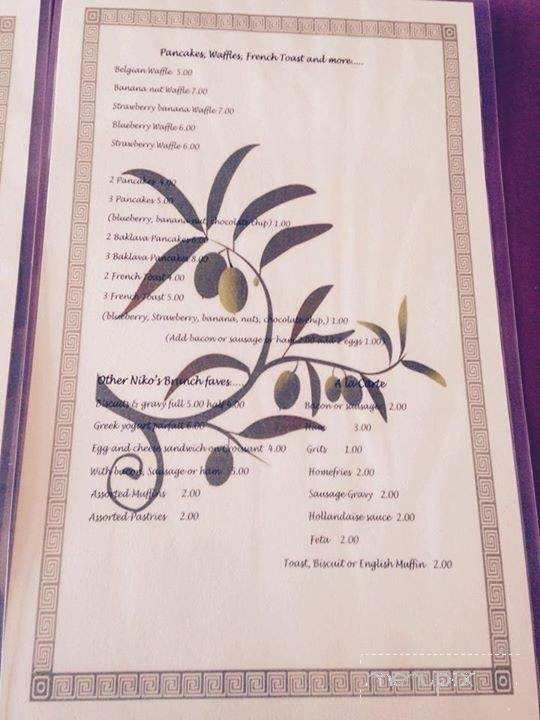 Pancakes, Waffles, French Toast and more.....
Belgian Waffle 5.00
Banana nut Waffle 7.00
Strawberry banana Waffle 7.00
Blueberry Waffle 6.00
Strawberry Waffle 6.00
2 Pancakes 4.00
3 Pancakes 5.00
(blueberry, banana nut, chocolate chip) 1.00
2 Baklava Pancakes 6.00
3 Baklava Pancakes 8.00
2 French Toast 4.00
3 French Toast 5.00
(blueberry, Strawberry, banana, nuts, chocolate chip,) 1.00
(Add bacon or sausage or ham 2.00 add 2 eggs 1.00)
Other Niko's Brunch faves.....
Biscuits & gravy full 5.00 half 4.00
Greek yogurt parfait 6.00
Egg and cheese sandwich on croissant 4.00
With bacon, Sausage or ham 5.00
Assorted Muffins 2.00
Assorted Pastries 2.00
A la Carte
Bacon or sausage 2.00
Ham 3.00
Grits 1.00
Homefries 2.00
Sausage Gravy 2.00
Hollandaise sauce 2.00
Feta 2.00
Toast, Biscuit or English Muffin 2.00
menupix